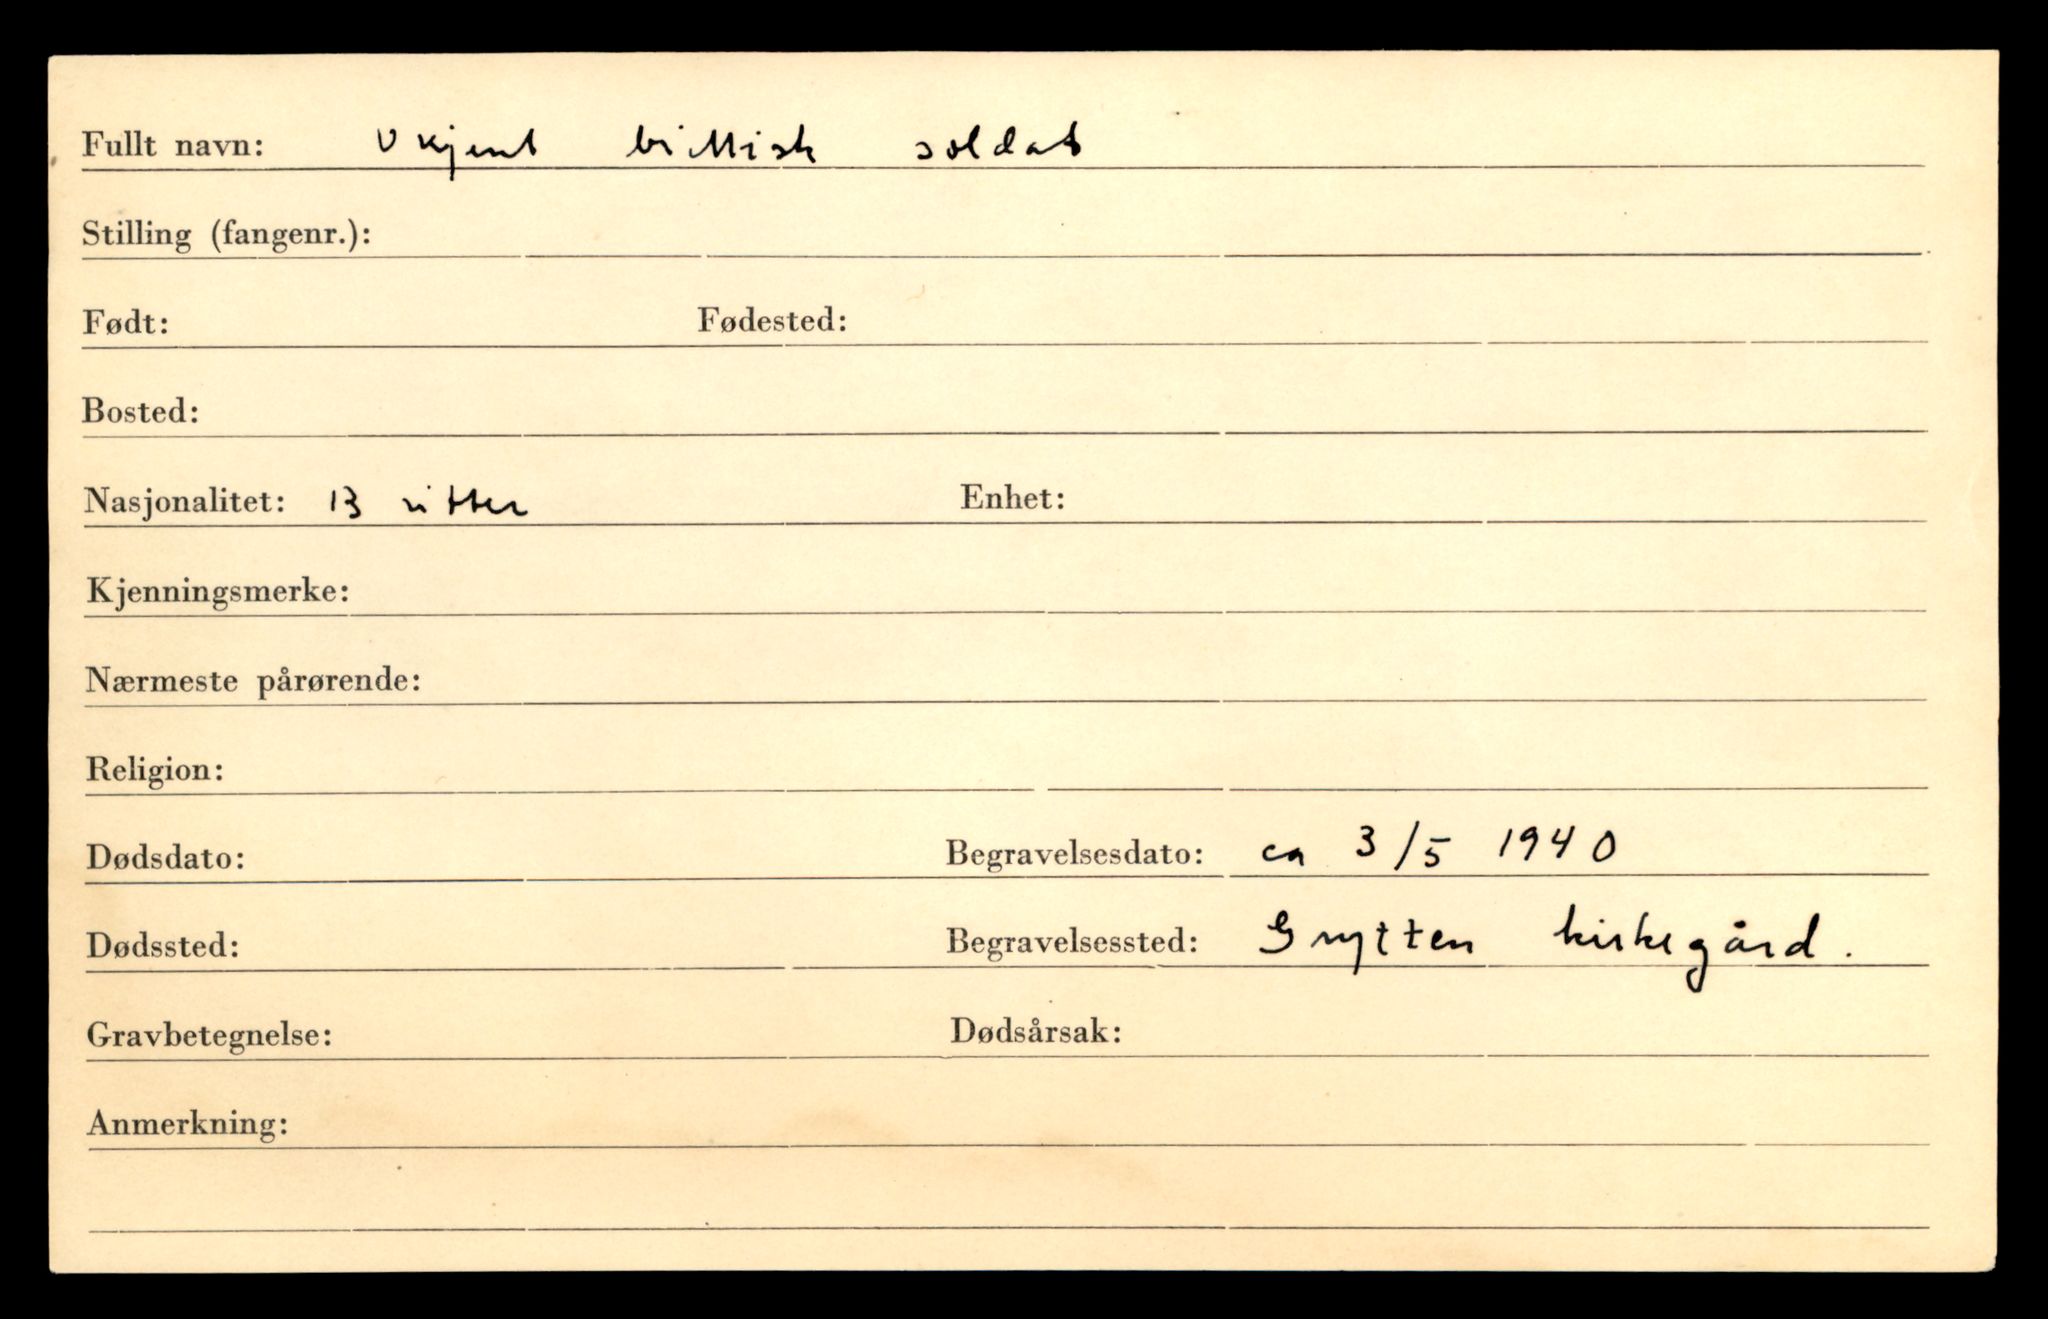 Fullt navn: Ukjent brittisk soldat
Stilling (fangenr.):
Født: Fødested:
Bosted:
Nasjonalitet: Britter Enhet:
Kjenningsmerke:
Nærmeste pårørende:
Religion:
Dødsdato: Begravelsesdato: ca 3/5 1940
Dødssted: Begravelsessted: Grytten kirkegård.
Gravbetegnelse: Dødsårsak:
Anmerkning: